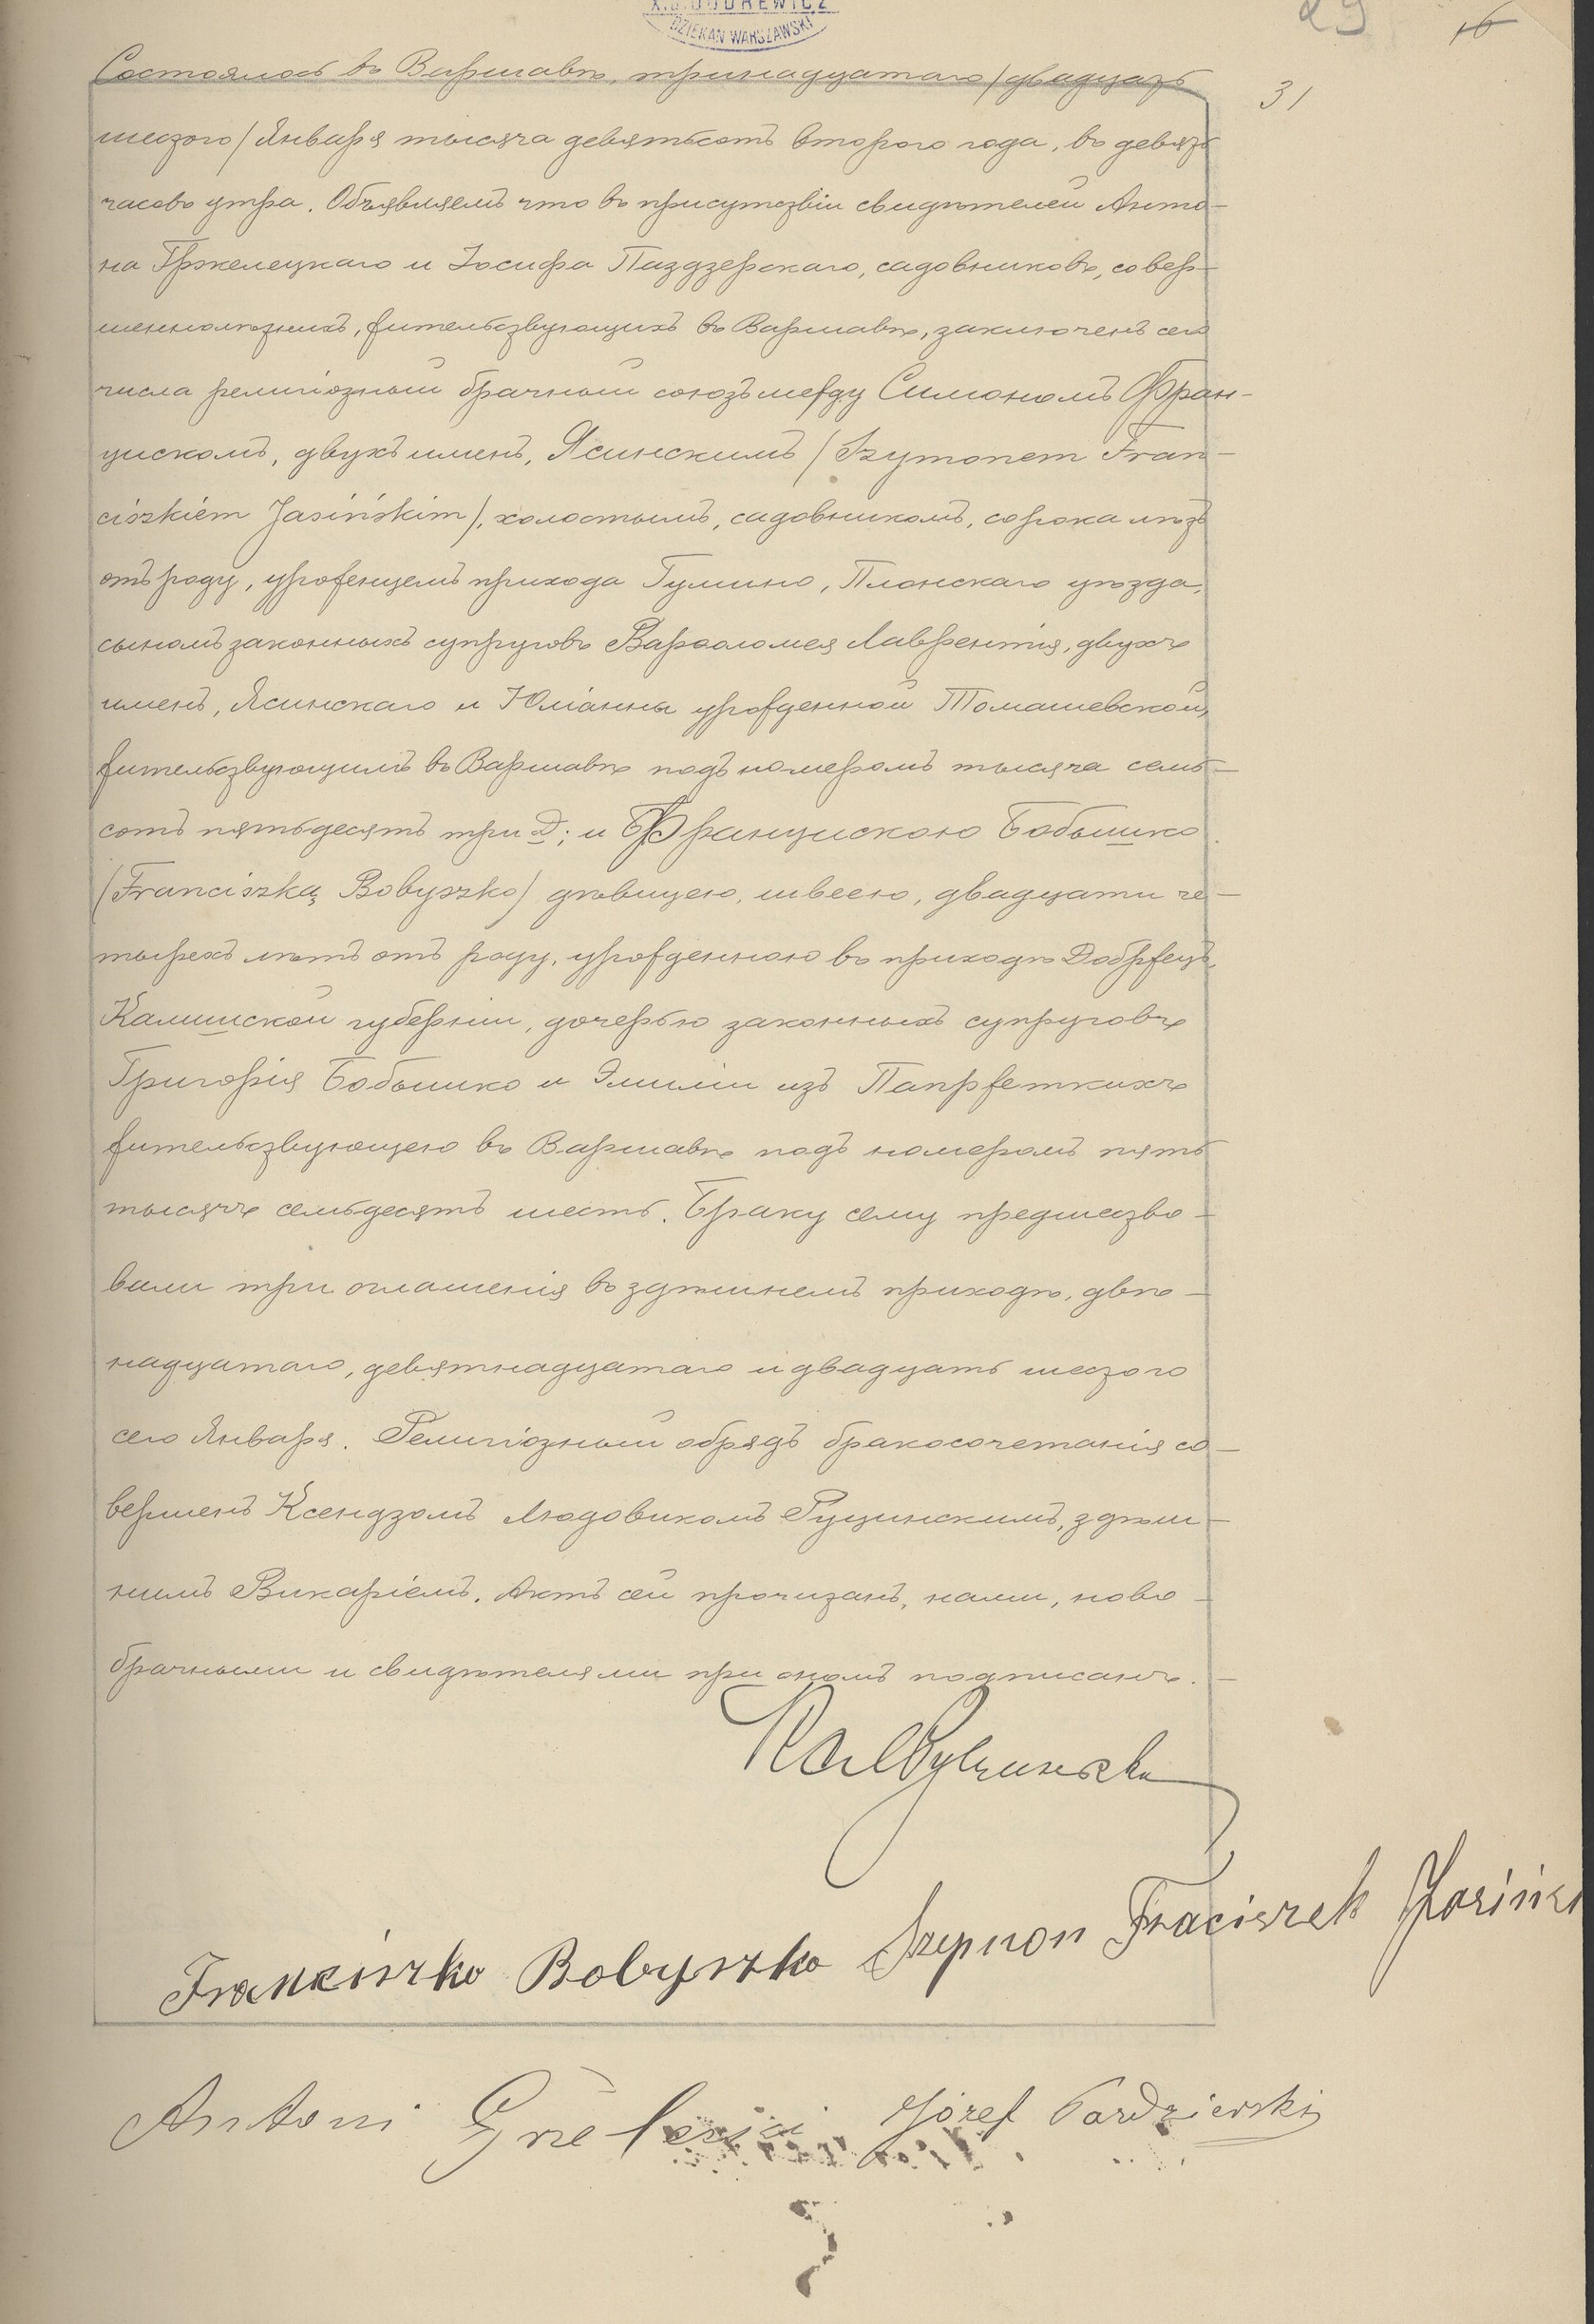 DZIEKAN WARSZAWSKI
16
31
Состоялось въ Варшавѣ, тринадцатаго /двадцать
шестого/ Января тысяча девятьсотъ второго года, въ девять
часовъ утра. Объявляемъ что въ присутствіи свидѣтелей Анто-
на Гржелецкаго и Іосифа Паздзерскаго, садовниковъ, совер-
шеннолѣтнихъ, жительствующихъ въ Варшавѣ, заключенъ сего
числа религіозный брачный союзъ между Симономъ Фран-
цискомъ, двухъ именъ, Ясинскимъ /Szymonem Fran-
ciszkiem Jasińskim/, холостымъ, садовникомъ, сорока лѣтъ
отъ роду, уроженцемъ прихода Гумино, Плонскаго уѣзда,
сыномъ законныхъ супруговъ Варѳоломея Лаврентія, двухъ
именъ, Ясинскаго и Юліанны урожденной Томашевской,
жительствующимъ въ Варшавѣ подъ номеромъ тысяча семь-
сотъ пятьдесятъ три Д; и Францискою Бобышко
/Franciszką Bobyszko/ дѣвицею, швеею, двадцати че-
тырехъ лѣтъ отъ роду, урожденною въ приходѣ Добржецъ,
Калишской губерніи, дочерью законныхъ супруговъ
Григорія Бобышко и Эмиліи изъ Папржеткихъ
жительствующею въ Варшавѣ подъ номеромъ пять
тысячъ семьдесятъ шесть. Браку сему предшество-
вали три оглашенія въ здѣшнемъ приходѣ, двѣ-
надцатаго, девятнадцатаго и двадцать шестого
сего Января. Религіозный обрядъ бракосочетанія со-
вершенъ Ксендзомъ Людовикомъ Рущинскимъ, здѣш-
нимъ Викаріемъ. Актъ сей прочитанъ, нами, ново-
брачными и свидѣтелями при ономъ подписанъ.-
Franciszka Bobyszko Szymon Fraciszek Jasińs
Antoni Grzelecki Józef Pazdzierski